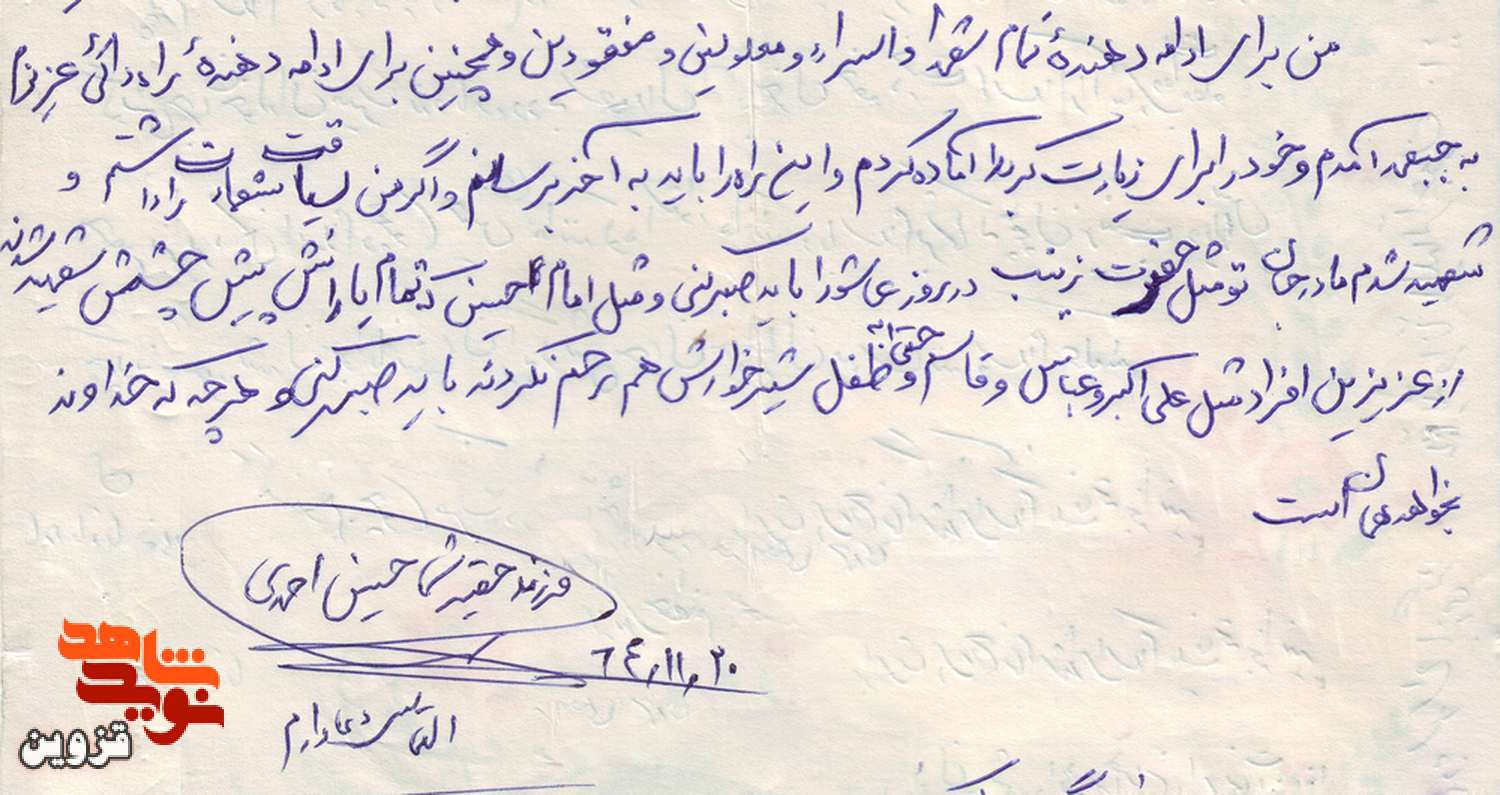 من برای ادامه دهندهٔ تمام شهدا و اسراء و معلولین و مفقودین و همچنین برای ادامه دهندهٔ راه دائی عزیزم
به جبهه آمدم و خود را برای زیارت کربلا آماده کردم و این راه را باید به آخر برسانم و اگر من لیاقت شهادت را داشتم و
شهید شدم مادر جان تو مثل حضرت زینب در روز عاشورا باید صبر کنی و مثل امام حسین که تمام یارانش پیش چشمش شهید شدند
از عزیزین افراد مثل علی اکبر و عباس و قاسم و حتی به طفل شیر خوارش هم رحم نکردند باید صبر کنی و هرچه که خداوند
بخواهد همان است
فرزند حقیر شما حسین احمدی
۶۴,۱۱,۲۰
التماس دعا دارم
نوید شاهد
قزوین